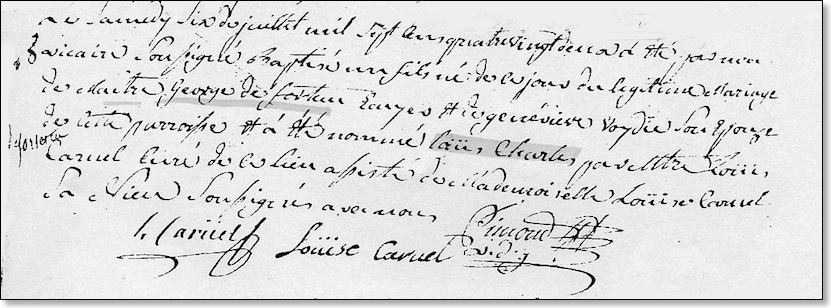 Le Samedy six de juillet mil sept cens quatre vingt deux a été par nous
vicaire soussigné Baptisé un fils né de ce jour du legitime Mariage
de Maitre George de fortin Ecuyer et de geneviève Voydie son Epouze
de cette parroisse et a été nommé loüis Charles par Mtre Loüis
Caruel Curé de ce lieu assisté de Mademoiselle Loüise Caruel
Sa Niece soussignés avec nous
L Carüel Loüise Caruel